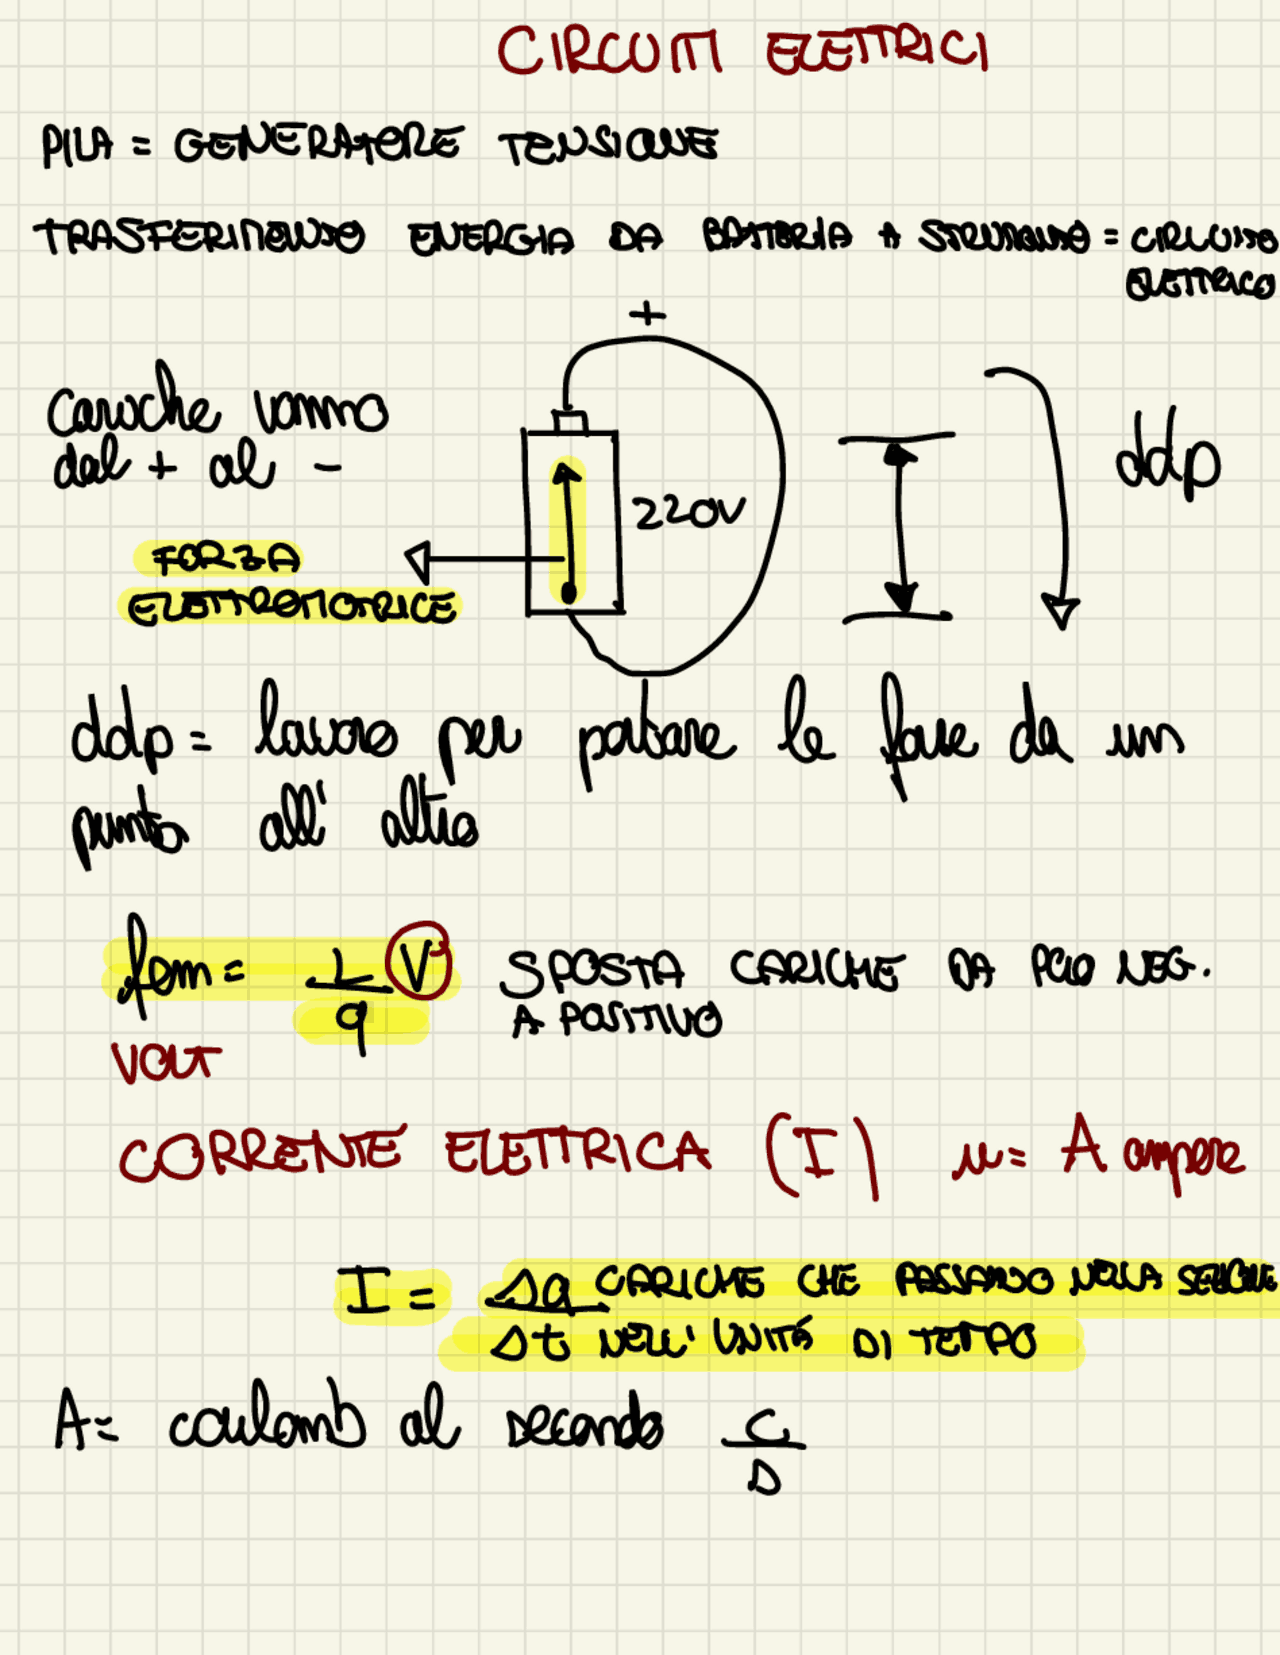 CIRCUITI ELETTRICI
PILA = GENERATORE TENSIONE
TRASFERIMENTO ENERGIA DA BATTERIA A STRUMENTO = CIRCUITO
ELETTRICO
+
Cariche vanno
dal + al -
220V
ddp
FORZA
ELETTROMOTRICE
ddp = lavoro per portare le forze da un
punto all' altro
fem = L/q V SPOSTA CARICHE DA POLO NEG.
A POSITIVO
VOLT
CORRENTE ELETTRICA (I) u = A ampere
I = Δq CARICHE CHE PASSANO NELLA SEZIONE
Δt NELL' UNITÁ DI TEMPO
A = coulomb al secondo C/s